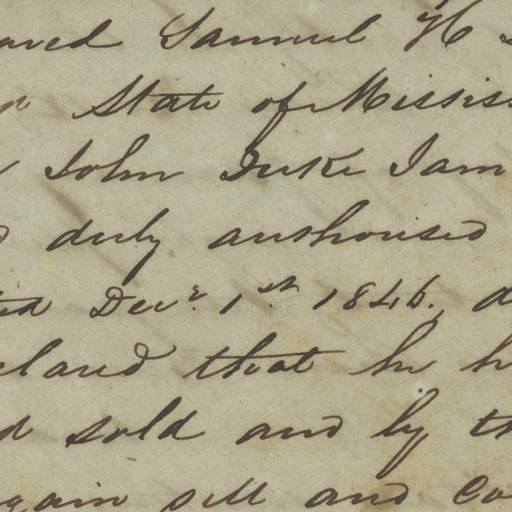 ared Samuel H
State of Missis
John Duke Jam
duly authorised
ted Decr. 1st. 1846., d
clared that he h
d sold and by th
gain sell and Co